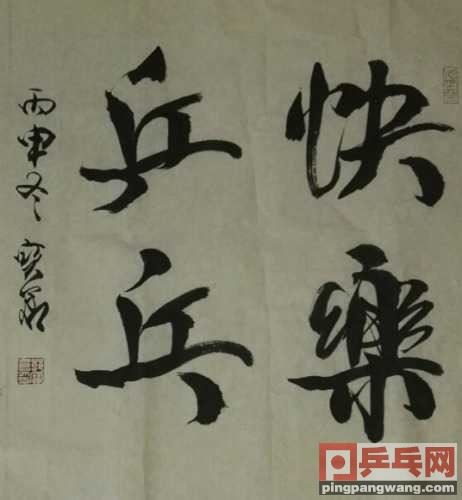 快樂
乒乓
丙申冬
乒乓网
pingpangwang.com